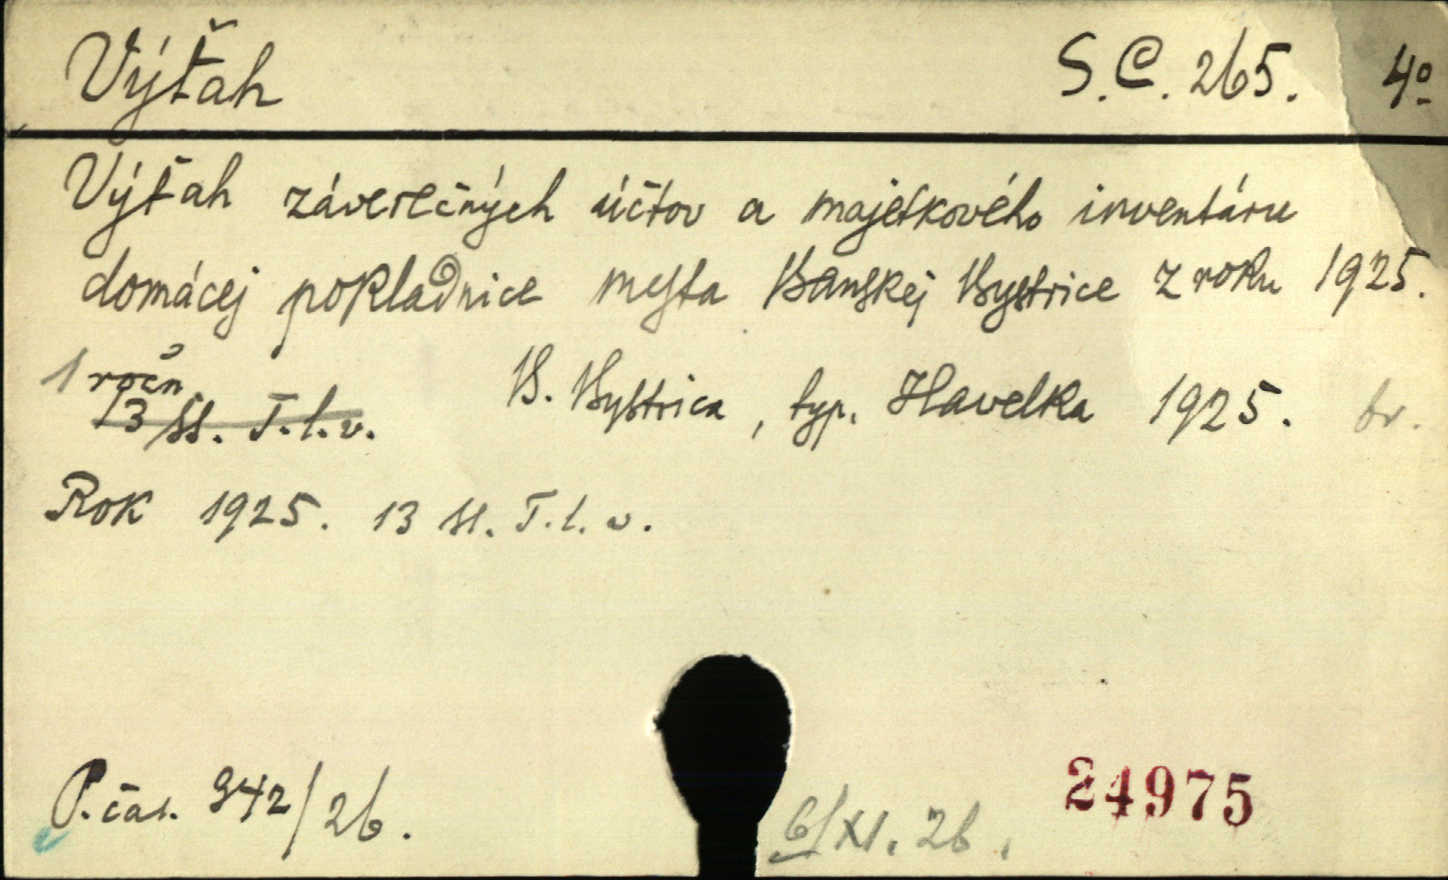 Výťah S.C. 265. 4º
Výťah záverečných účtov a majetkového inventáru
domácej pokladnice mesta Banskej Bystrice z roku 1925.
1 ročn
13 st. T.l.v. B. Bystrica, typ. Havelka 1925. br.
Rok 1925. 13 st. T.l.v.
P.čas. 942/26. 6/XI. 26.
24975